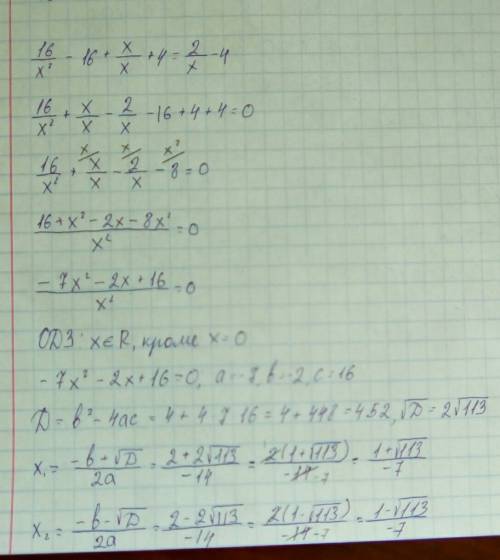 16/x² - 16 + x/x + 4 = 2/x - 4
16/x² + x/x - 2/x - 16 + 4 + 4 = 0
16/x² + x/ x/x - x/ 2/x - x²/ 8 = 0
(16 + x² - 2x - 8x²)/x² = 0
(-7x² - 2x + 16)/x² = 0
ОДЗ: x∈R, кроме x = 0
-7x² - 2x + 16 = 0, a = -7, b = -2, c = 16
D = b² - 4ac = 4 + 4·7·16 = 4 + 448 = 452, √D = 2√113
x₁ = (-b + √D)/2a = (2 + 2√113)/-14 = 2(1 + √113)/-14 -7 = (1 + √113)/-7
x₂ = (-b - √D)/2a = (2 - 2√113)/-14 = 2(1 - √113)/-14 -7 = (1 - √113)/-7